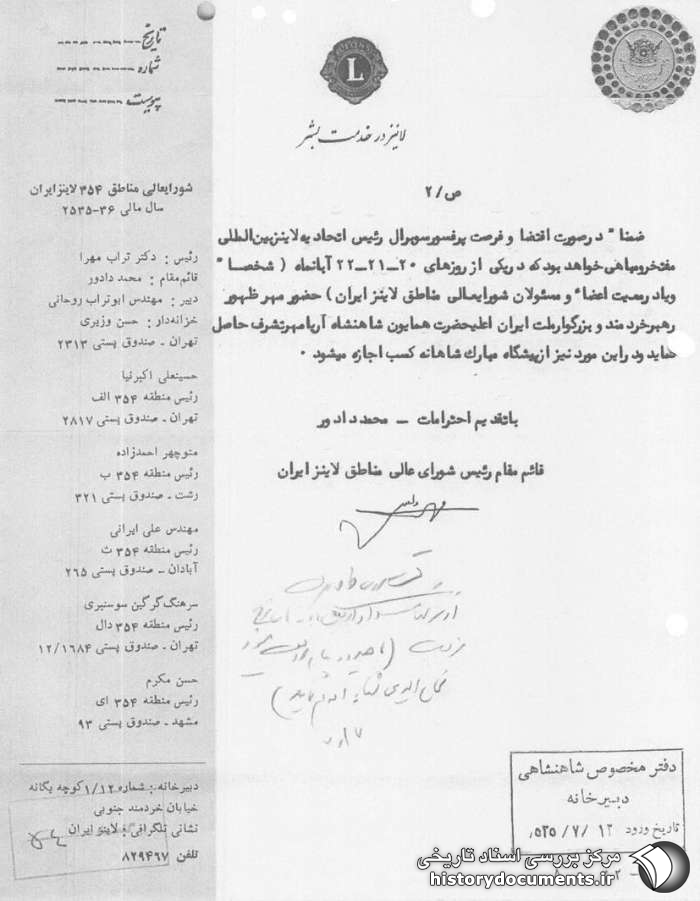 تاریخ
شماره
پیوست
L
لاینز در خدمت بشر
شورایعالی مناطق ۳۵۴ لاینز ایران
سال مالی ۳۶-۲۵۳۵
رئیس : دکتر تراب مهرا
قائم‌مقام : محمد دادور
دبیر : مهندس ابوتراب روحانی
خزانه‌دار : حسن وزیری
تهران - صندوق پستی ۲۳۱۳
حسینعلی اکبرنیا
رئیس منطقه ۳۵۴ الف
تهران - صندوق پستی ۲۸۱۷
منوچهر احمدزاده
رئیس منطقه ۳۵۴ ب
رشت - صندوق پستی ۳۲۱
مهندس علی ایرانی
رئیس منطقه ۳۵۴ ث
آبادان - صندوق پستی ۲۶۵
سرهنگ گرگین سوسنبری
رئیس منطقه ۳۵۴ دال
تهران - صندوق پستی ۱۲/۱۶۸۴
حسن مکرم
رئیس منطقه ۳۵۴ ای
مشهد - صندوق پستی ۹۳
دبیرخانه : شماره ۱/۱۲ کوچه یگانه
خیابان خردمند جنوبی
نشانی تلگرافی : لاینز ایران
تلفن ۸۲۹۴۶۷
ص / ۲
ضمنا" در صورت اقتضا و فرصت پرفسور سوبرال رئیس اتحادیه لاینز بین‌المللی
مفتخر و مباهی خواهد بود که در یکی از روزهای ۲۰-۲۱-۲۲ آبانماه ( شخصا"
و یا در معیت اعضا و مسئولان شورایعالی مناطق لاینز ایران ) حضور مهر ظهور
رهبر خردمند و بزرگوار ملت ایران اعلیحضرت همایون شاهنشاه آریامهر تشرف حاصل
نماید و در این مورد نیز از پیشگاه مبارك شاهانه کسب اجازه میشود .
با تقدیم احترامات - محمد دادور
قائم مقام رئیس شورای عالی مناطق لاینز ایران
دفتر مخصوص شاهنشاهی
دبیرخانه
تاریخ ورود ۱۲ /۷/ ۵۳۵
مرکز بررسی اسناد تاریخی
historydocuments.ir